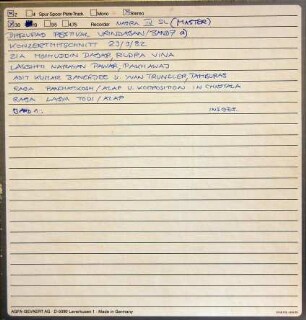 2 4 Slow Speed Plate Track Mono Stereo
38 19 9.5 4.75 Recorder NAGRA IV SL (MASTER)
DHRUPAD FESTIVAL VRINDABAN/BAND 7
KONZERTMITSCHNITT 23/3/82
ZIA MOHIUDDIN DAGAR, RUDRA VINA
LACCHMI NARAYAN PAWAR, PAKHAWAJ
ASIT KUMAR BANERJEE U. YVAN TRUNZLER, TAMBURAS
RAGA PANCHAMKOSH/ALAP U. KOMPOSITION IN CHAUTALA
RAGA TODI/ALAP
AGFA-GEVAERT AG · D 5090 Leverkusen 1 · Made in Germany